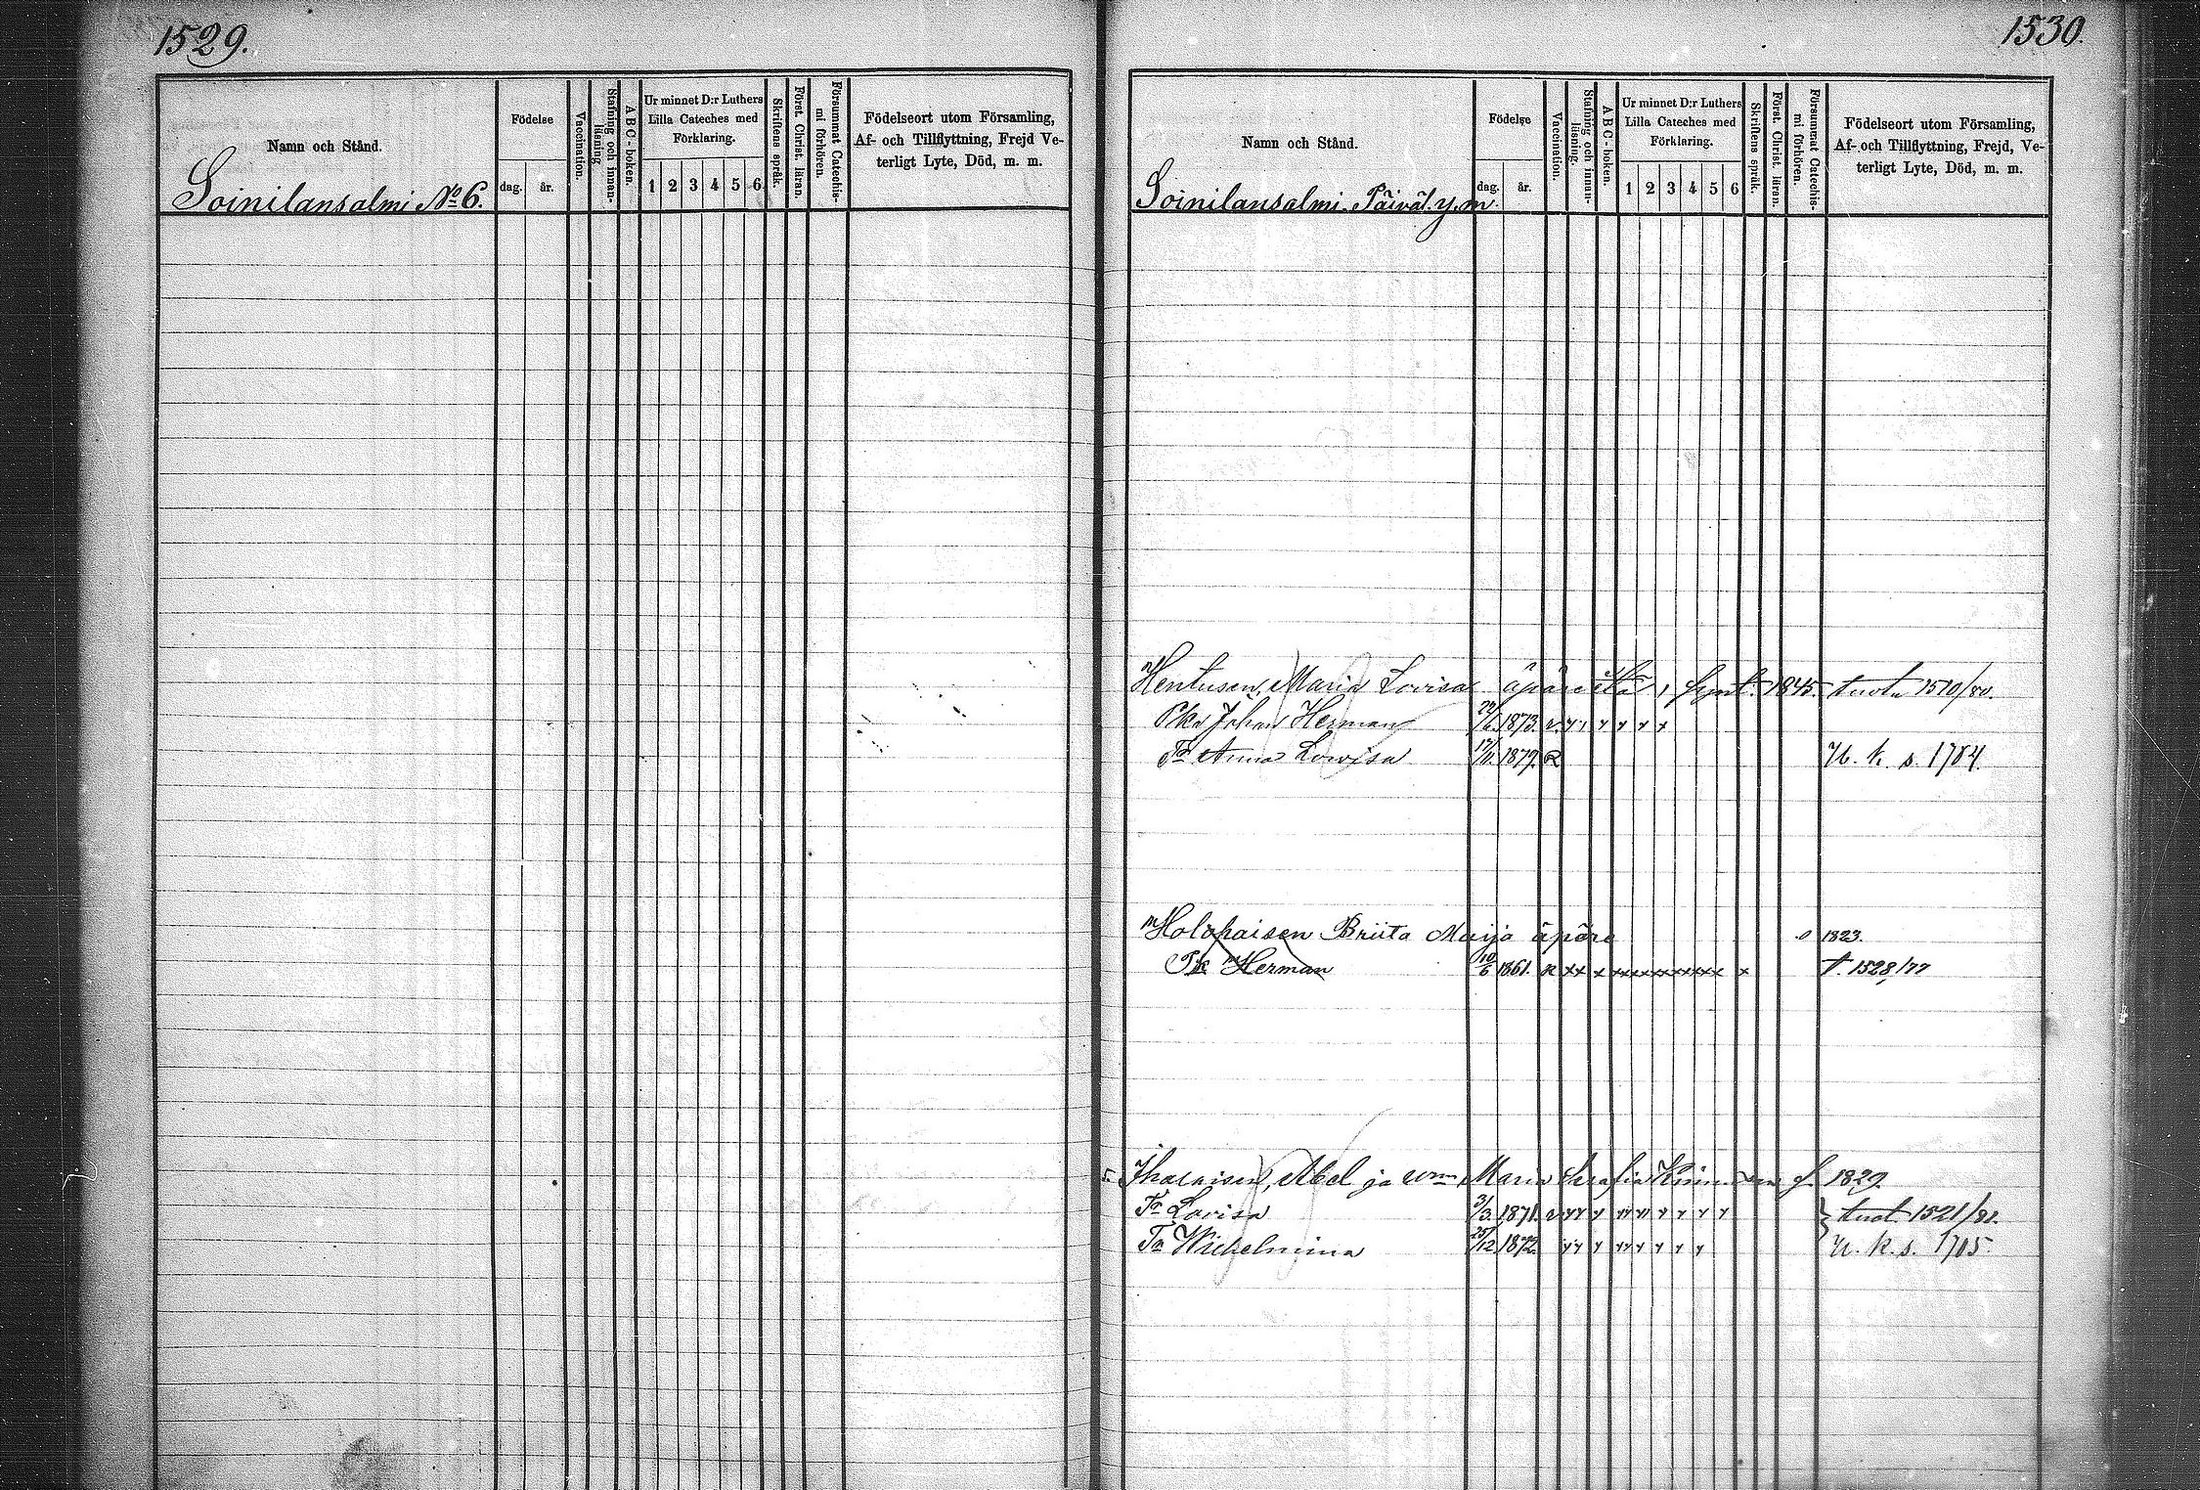 1529.
Namn och Stånd.
Födelse
dag.
år.
Vaccination.
Stafning och innan-
läsning
A B C - boken.
Ur minnet D:r Luthers
Lilla Cateches med
Förklaring.
1 2 3 4 5 6
Skriftens språk.
Först. Christ. läran.
Försummat Catechis-
mi förhören.
Födelseort utom Församling,
Af- och Tillflyttning, Frejd Ve-
terligt Lyte, Död, m. m.
Soinilansalmi No 6.
1530.
Namn och Stånd.
Födelse
dag.
år.
Vaccination.
Stafning och innan-
läsning.
A B C - boken.
Ur minnet D:r Luthers
Lilla Cateches med
Förklaring.
1 2 3 4 5 6
Skriftens språk.
Först. Christ. läran.
Försummat Catechis-
mi förhören.
Födelseort utom Församling,
Af- och Tillflyttning, Frejd, Ve-
terligt Lyte, Död, m. m.
Soinilansalmi Päiväl. y. m.
Hentusen, Maria Lovisa äpäreitä, synt. 1845 tuotu 1510/80.
Pka Johan Herman 1873. v. x x x x x x
Tr Anna Lovisa 17/11. 1879. R U. k. s. 1784.
Holopaisen Briita Maija äpäre 1823.
Pk Herman 10/6 1861. R xx x xxxxxxxxxx x t. 1528/77
Ihalaisen, Abel ja wm Maria Serafia f. 1829.
Tr Lovisa 3/3. 1871. v tuot. 1521/81.
Tr Wilhelmina 25/12 1872. U. k. s. 1785.